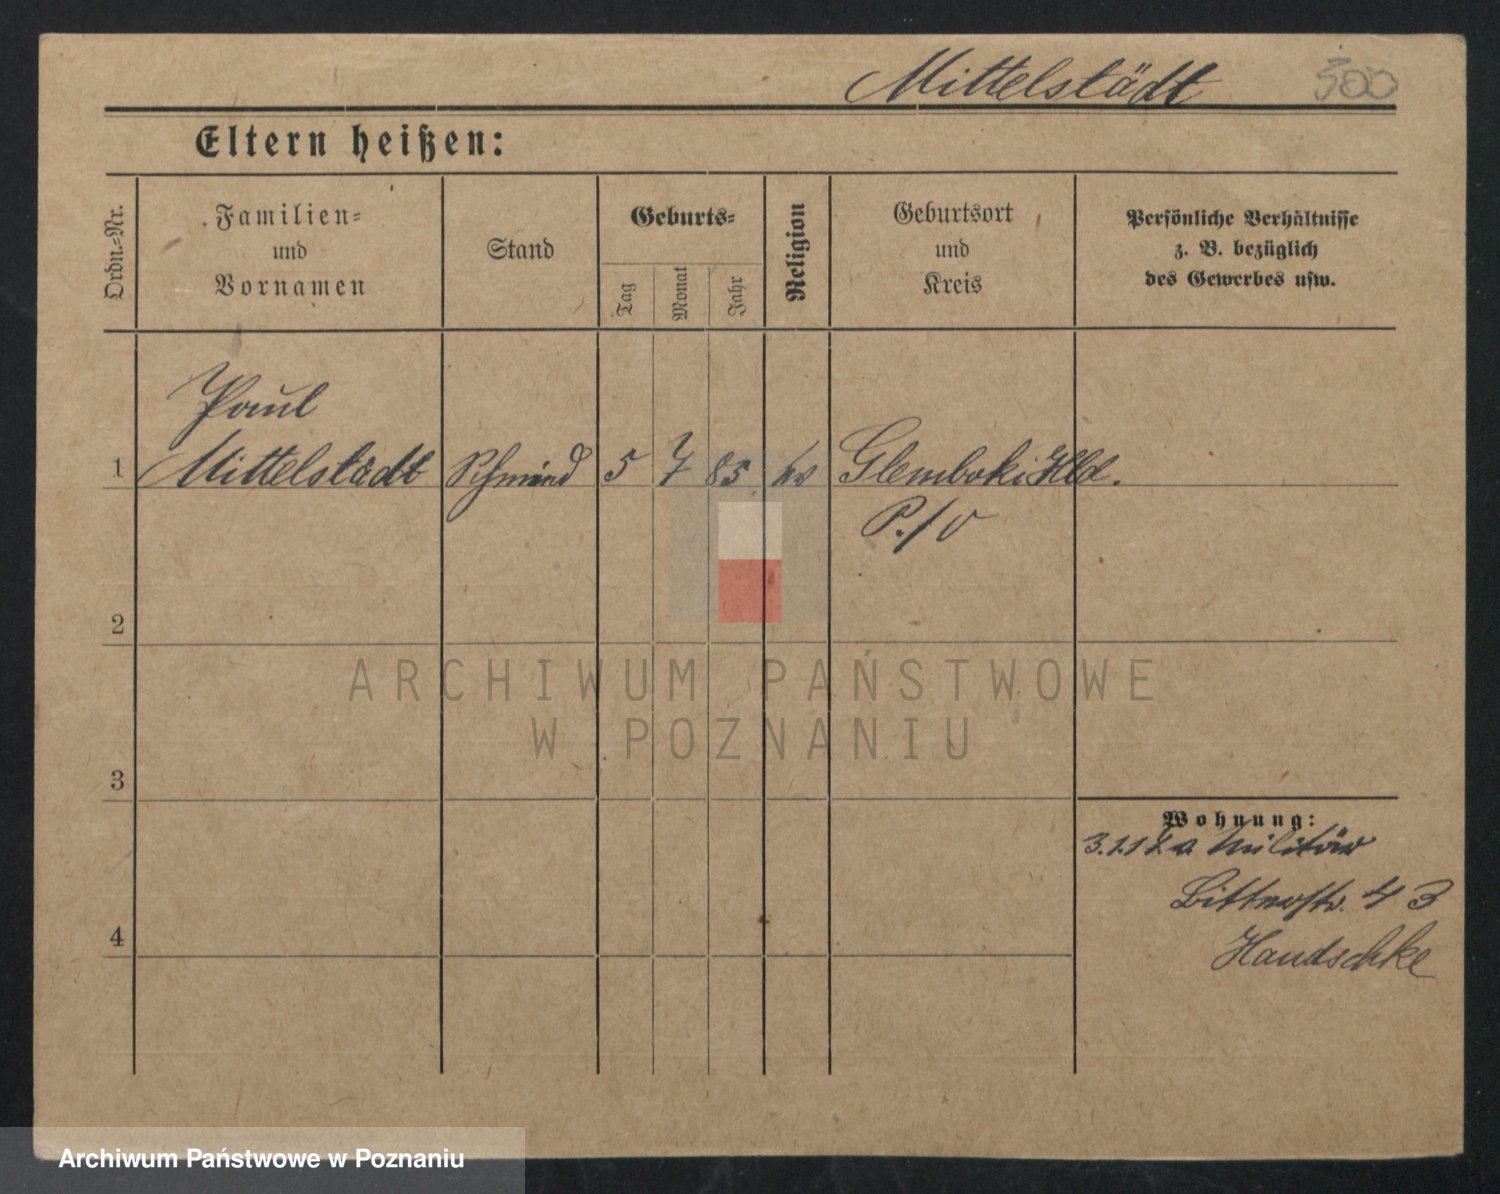 Mittelstädt 300
Eltern heißen:
Ordn.-Nr.
Familien-
und
Vornamen
Stand
Geburts-
Tag
Monat
Jahr
Religion
Geburtsort
und
Kreis
Persönliche Verhältnisse
z. B. bezüglich
des Gewerbes usw.
Paul
1 Mittelstädt Schmied 5 7 85 Glemboki Hld.
P./O
2
ARCHIWUM PAŃSTWOWE
W POZNANIU
3
Wohnung:
Militär
Bitterstr. 43
4
Handschke
Archiwum Państwowe w Poznaniu